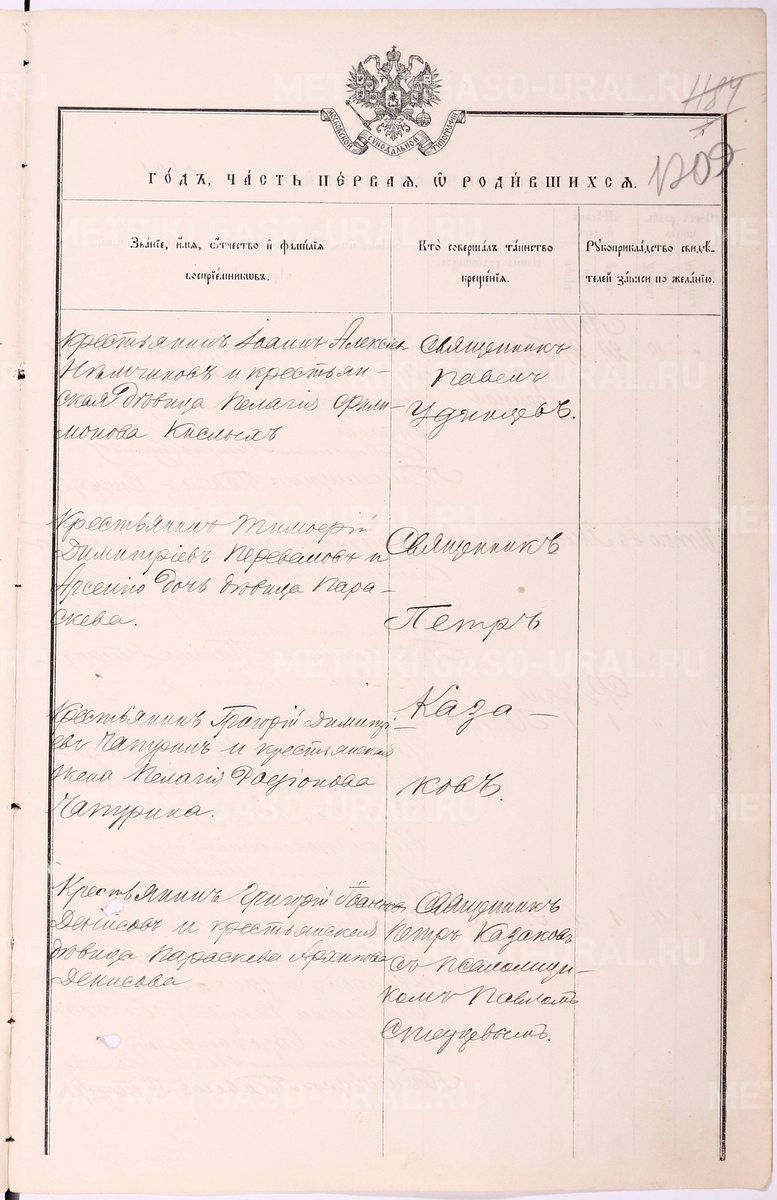 1184
1209
МОСКОВСКОЙ СѴНОДАЛЬНОЙ ТИПОГРАФІИ
ГО́ДЪ, ЧА́СТЬ ПЕ́РВАЯ, Ѡ҆ РОДИ́ВШИХСЯ.
Зва́нїе, и҆́мя, ѻ҆́тчество и҆ фами́лїя
воспрїе́мниковъ.
Кто̀ соверша́лъ та́инство
креще́нїя.
Рꙋкоприкла́дство свидѣ́-
телей за́писи по жела́нїю.
Крестьянинъ Іоаннъ Алексіев
Нѣмчиновъ и крестьян-
ская дѣвица Пелагія Фили-
монова Кислыхъ
Священникъ
Павелъ
Удинцевъ.
Крестьянинъ Тимофей
Димитріевъ и
Арсенія дочь дѣвица Пара-
скева.
Священникъ
Петръ
Каза-
ковъ.
Крестьянинъ Григорій Димитрі-
евъ Чапуринъ и крестьянская
жена Пелагія Родіонова
Чапурина.
Крестьянинъ Григорій Іоанновъ
Денисовъ и крестьянская
дѣвица Параскева Архипова
Денисова
Священникъ
Петръ Казаковъ
съ псаломщи-
комъ Павломъ
METRIKI.GASO-URAL.RU